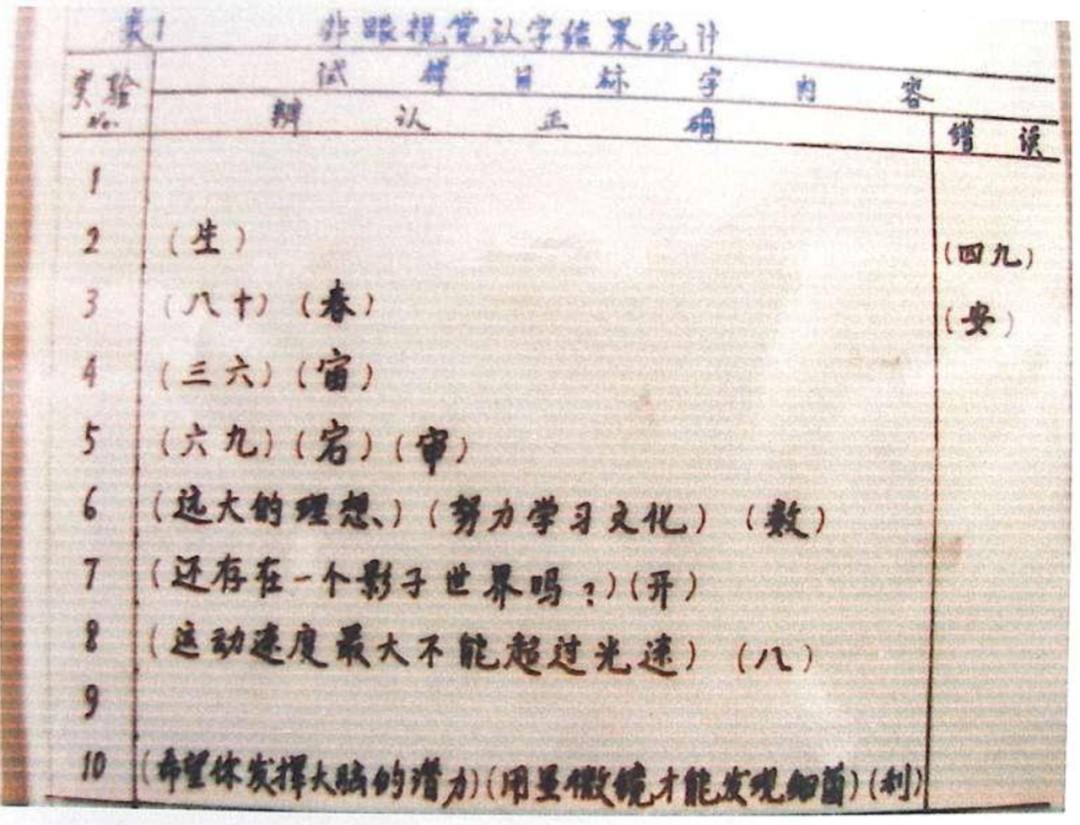 表1 非眼视觉认字结果统计
实验 试样目标字内容
No. 辨认正确 错误
1
2 (生) (四九)
3 (八十) (春) (安)
4 (三六) (宙)
5 (六九) (宕) (审)
6 (远大的理想、) (努力学习文化) (数)
7 (还存在一个影子世界吗?) (开)
8 (运动速度最大不能超过光速) (八)
9
10 (希望你发挥大脑的潜力) (用显微镜才能发现细菌) (利)